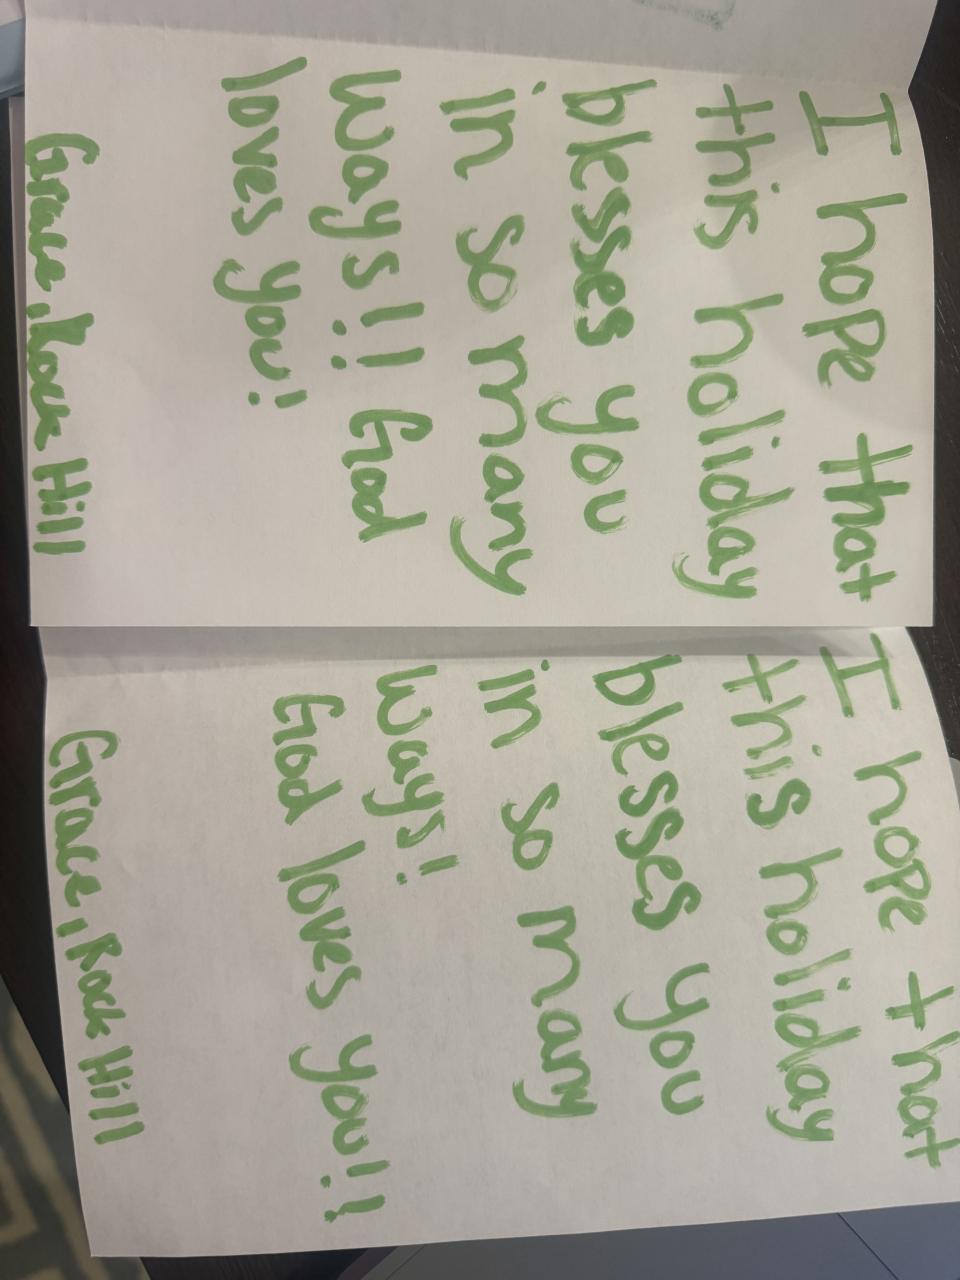 I hope that
this holiday
blesses you
in so many
ways!! God
loves you!
Grace, Rock Hill
I hope that
this holiday
blesses you
in so many
ways!
God loves you!!
Grace, Rock Hill